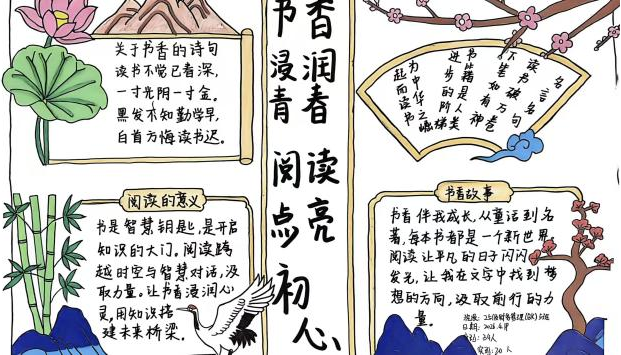 书香润春
浸青
阅读点亮初心
关于书香的诗句
读书不觉已春深,
一寸光阴一寸金。
黑发不知勤学早,
白首方悔读书迟。
名言
读书破万卷
下笔如有神
书籍是人类
进步的阶梯
为中华之崛
起而读书
阅读的意义
书是智慧钥匙,是开启
知识的大门。阅读跨
越时空与智慧对话,汲
取力量。让书香浸润心
灵,用知识搭
建未来桥梁。
书香故事
书香伴我成长,从童话到名
著,每本书都是一个新世界。
阅读让平凡的日子闪闪
发光,让我在文字中找到梦
想的方向,汲取前行的力
量。
日期: